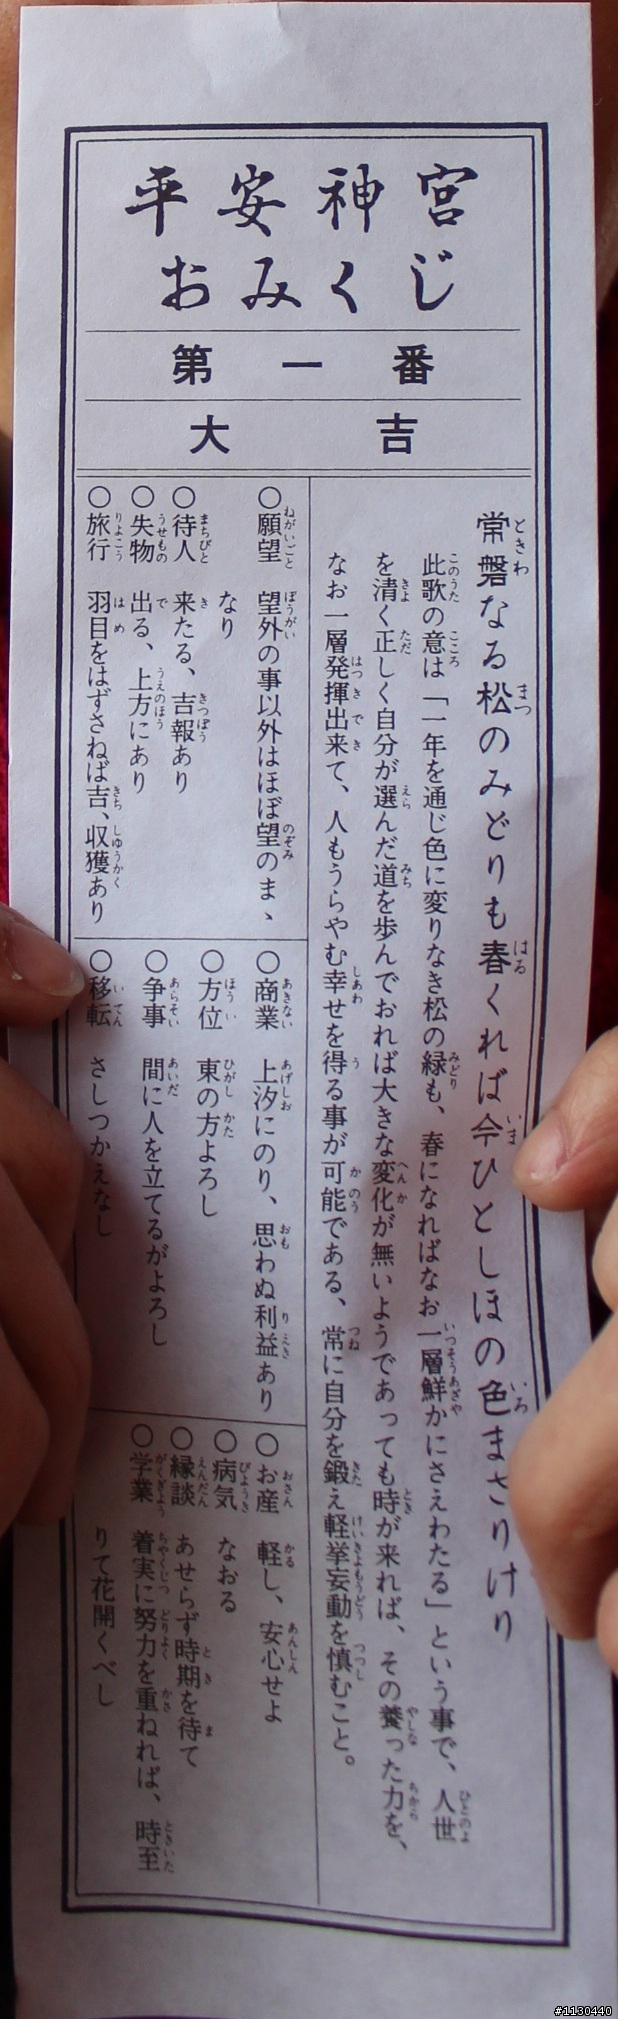 平安神宮
おみくじ
第一番
大吉
常磐なる松のみどりも春くれば今ひとしほの色まさりけり
此歌の意は「一年を通じ色に変りなき松の緑も、春になればなお一層鮮かにさえわたる」という事で、人世
を清く正しく自分が選んだ道を歩んでおれば大きな変化が無いようであっても時が来れば、その養った力を、
なお一層発揮出来て、人もうらやむ幸せを得る事が可能である、常に自分を鍛え軽挙妄動を慎むこと。
○願望 望外の事以外はほぼ望のまゝ
なり
○待人 来たる、吉報あり
○失物 出る、上方にあり
○旅行 羽目をはずさねば吉、収獲あり
○商業 上汐にのり、思わぬ利益あり
○方位 東の方よろし
○争事 間に人を立てるがよろし
○移転 さしつかえなし
○お産 軽し、安心せよ
○病気 なおる
○縁談 あせらず時期を待て
○学業 着実に努力を重ねれば、時至
りて花開くべし
#1130440